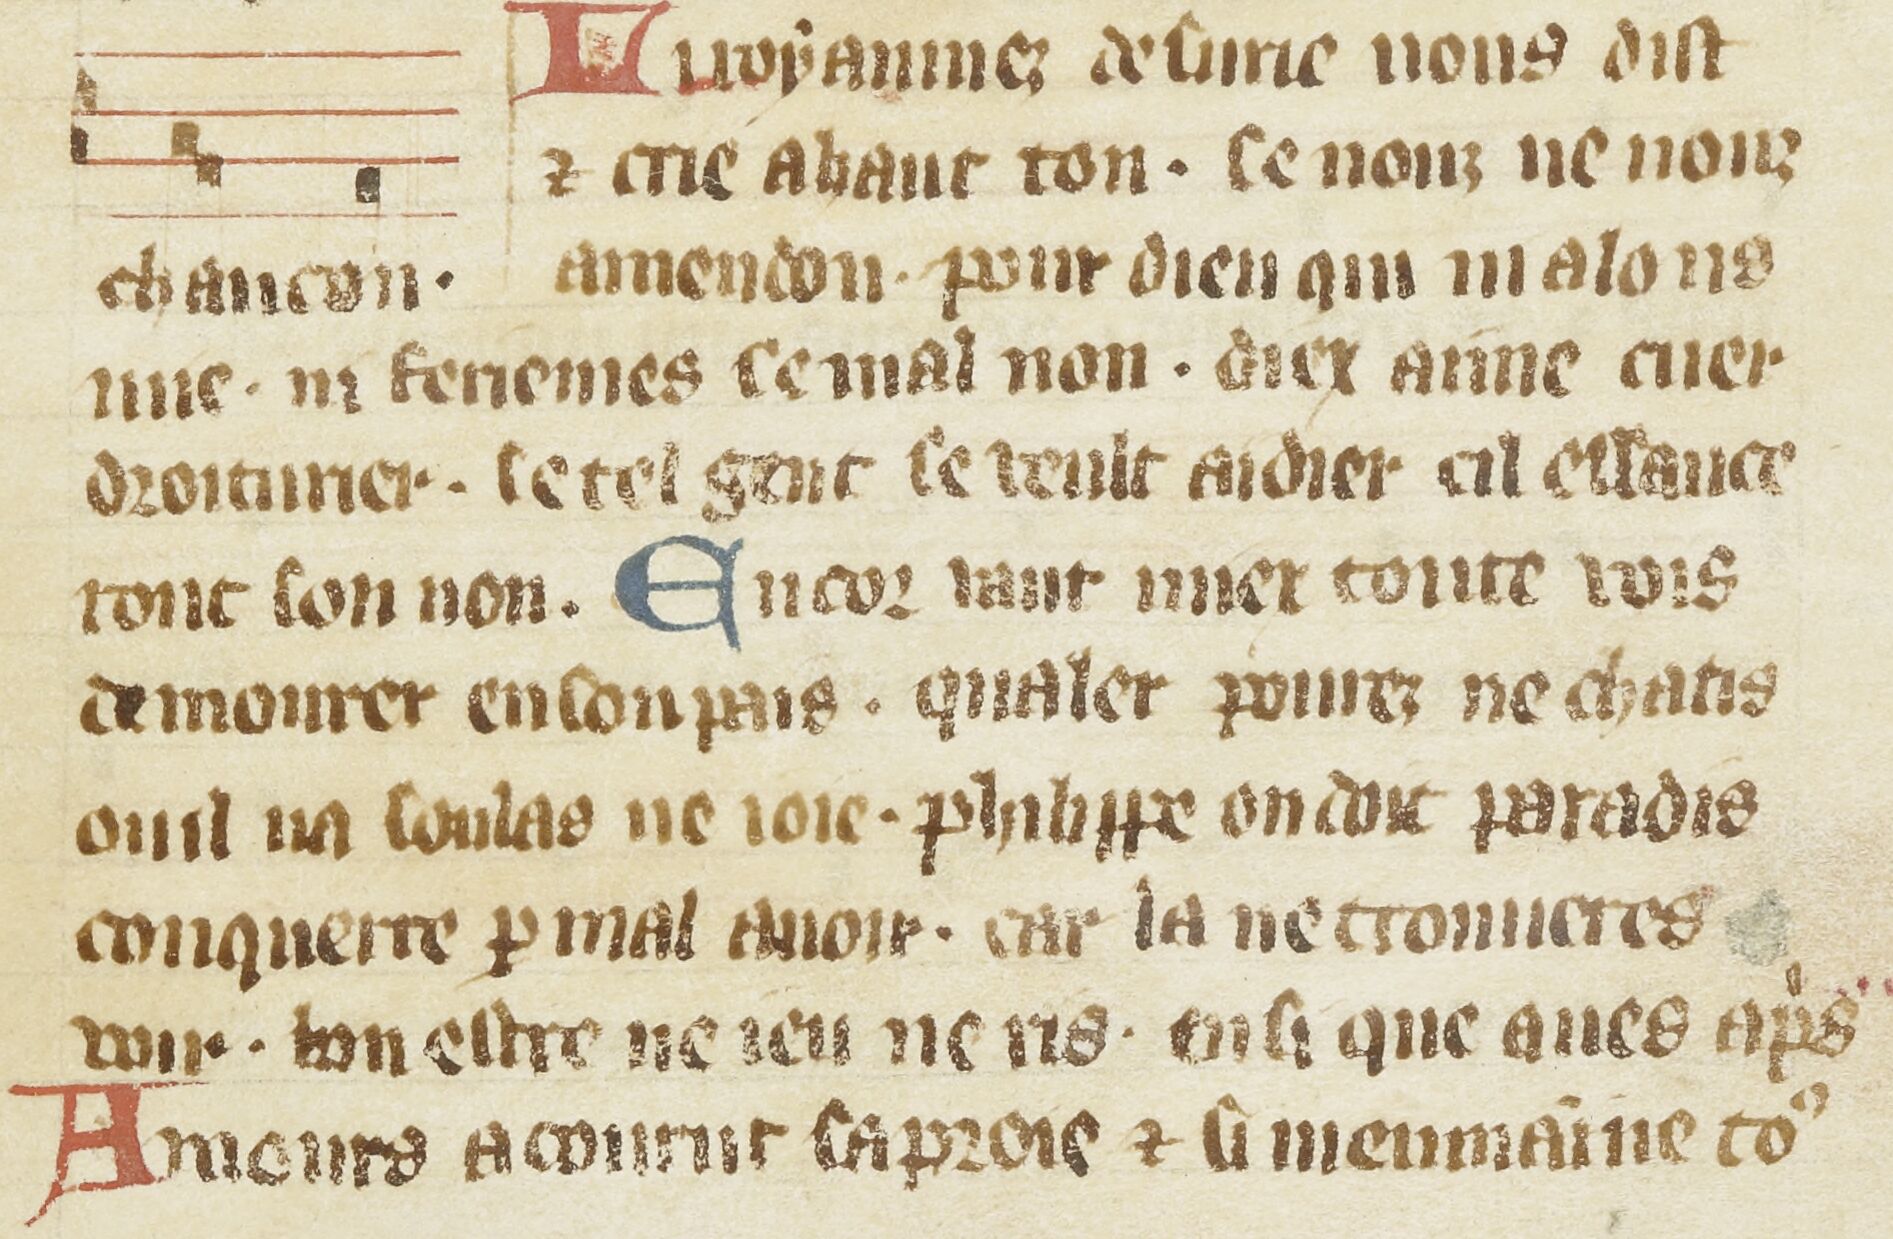 Li roȳaumez de surie nous dist
⁊ crie a haut ton. se nouz ne nouz
chancon. amendon. pour dieu qui ni alons
mie. ni feriemes se mal non. diex aime cuer
droiturier. de tel gent se veult aidier cil essauce
ront son non. Encor vaut miex toute vois
demourer en son pais. qualer pourez ne chatis
ou il na soulas ne ioie. phelippe on doit paradis
conquerre ꝑ mal auoir. car la ne trouueres
voir. bon estre ne ieu ne ris. ensi que aues ap̍s
Amours a couru sa proie ⁊ si meinmaīne toꝰ